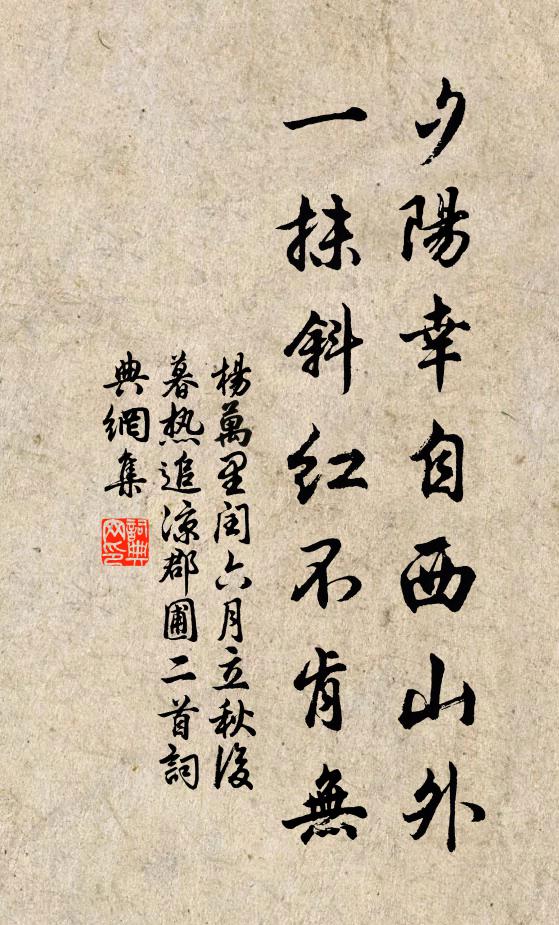 夕陽幸自西山外
一抹斜紅不肯無
楊萬里閏六月立秋後
暮热追凉郡圃二首詞
典網集
詞典
网印